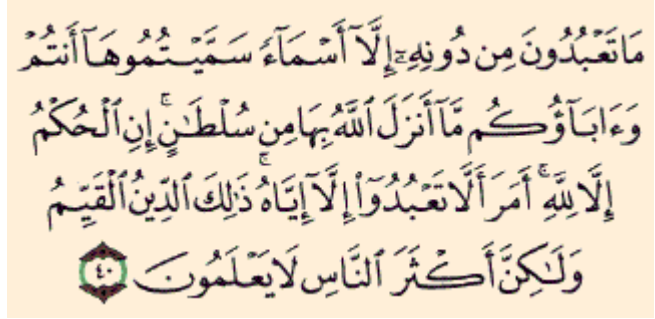 مَا تَعْبُدُونَ مِن دُونِهِۦٓ إِلَّآ أَسْمَآءً سَمَّيْتُمُوهَآ أَنتُمْ
وَءَابَآؤُكُم مَّآ أَنزَلَ ٱللَّهُ بِهَا مِن سُلْطَٰنٍۚ إِنِ ٱلْحُكْمُ
إِلَّا لِلَّهِۚ أَمَرَ أَلَّا تَعْبُدُوٓا۟ إِلَّآ إِيَّاهُۚ ذَٰلِكَ ٱلدِّينُ ٱلْقَيِّمُ
وَلَٰكِنَّ أَكْثَرَ ٱلنَّاسِ لَا يَعْلَمُونَ ٤٠